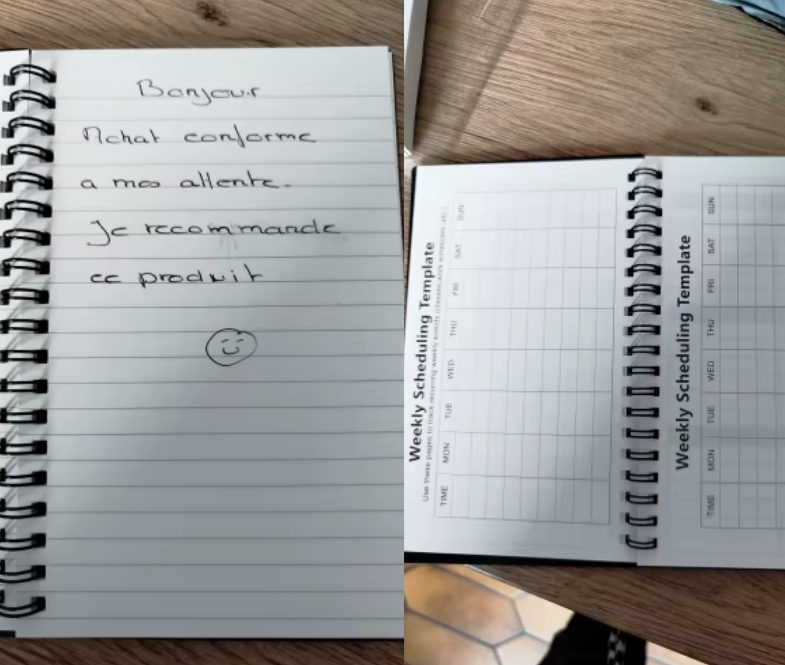 Bonjour
Achat conforme
a mes attente.
Je recommande
ce produit
Weekly Scheduling Template
Use these pages to track recurring weekly events (classes, work schedules, etc.)
TIME MON TUE WED THU FRI SAT SUN
Weekly Scheduling Template
TIME MON TUE WED THU FRI SAT SUN